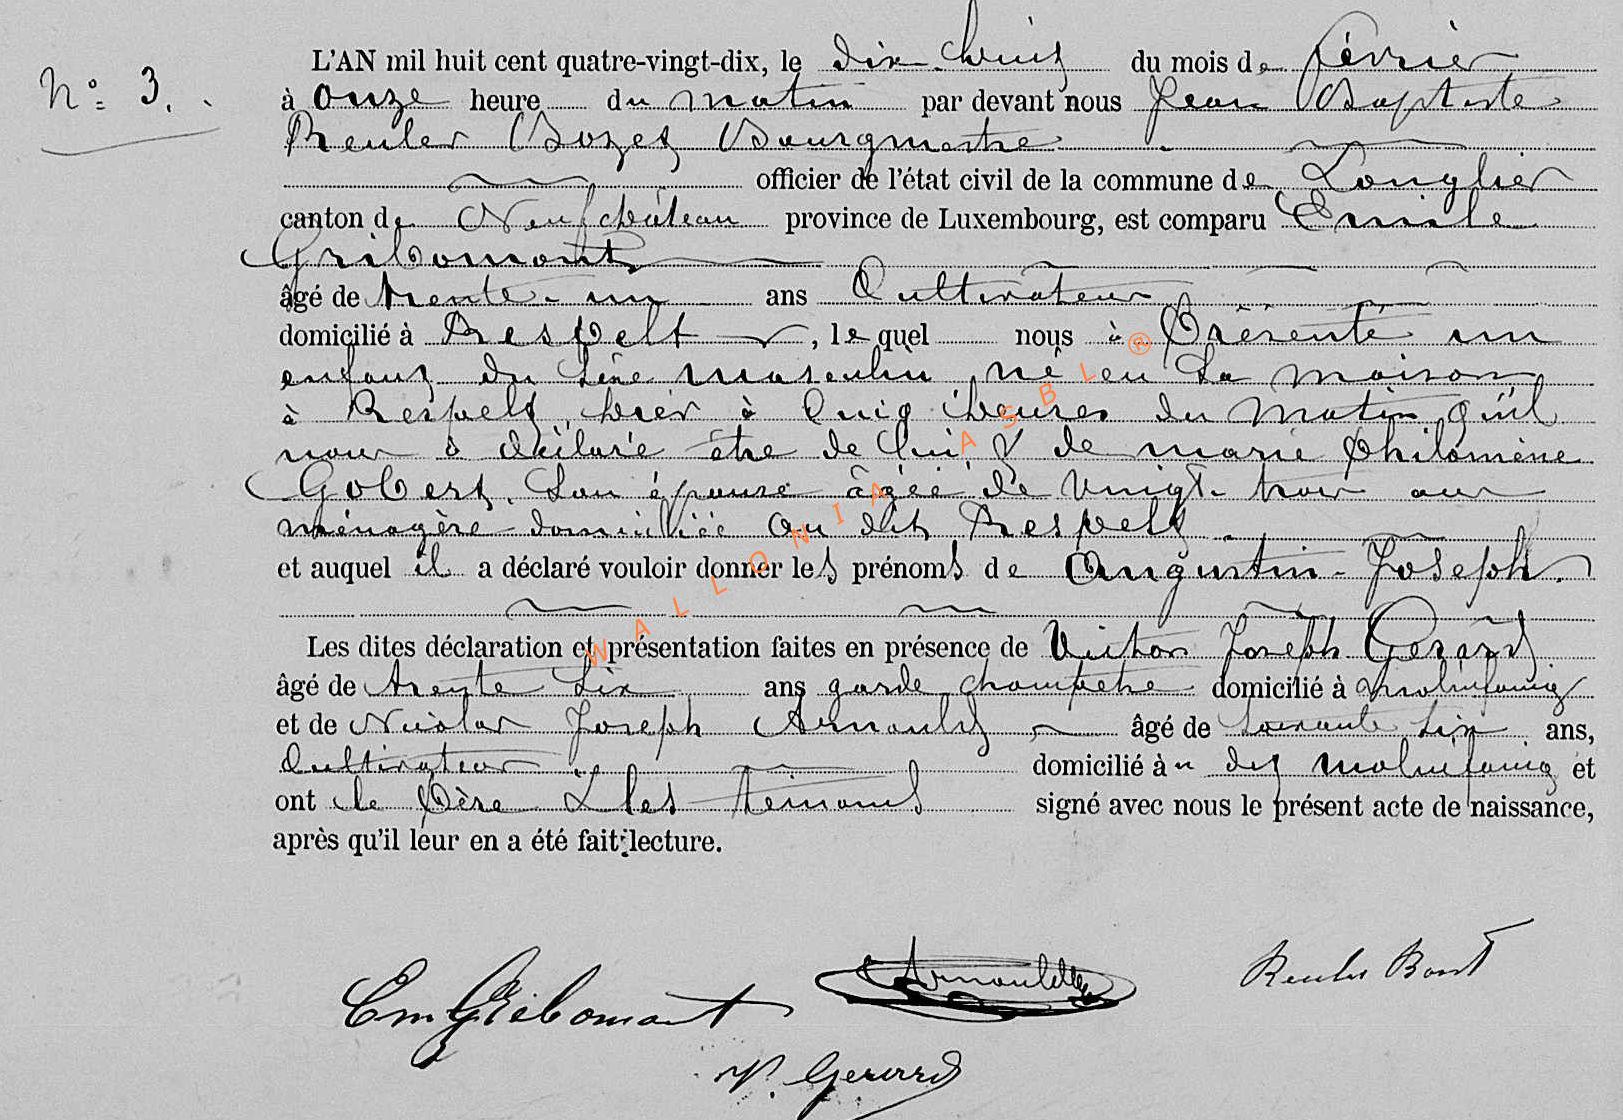 N° 3.
L'AN mil huit cent quatre-vingt-dix, le dix-huit du mois de février
à onze heure du matin par devant nous Jean Baptiste
Reuler Bozet Bourgmestre
officier de l'état civil de la commune de Longlier
canton de Neufchâteau province de Luxembourg, est comparu Emile
Gribomont
âgé de trente-un ans Cultivateur
domicilié à Respelt, lequel nous à Présenté un
enfant du sexe masculin né en sa maison
à Respelt, hier à cinq heures du matin qu'il
nous à déclaré être de lui & de marie philomène
Gobert son épouse âgée de vingt-trois ans
ménagère domiciliée au dit Respelt
et auquel il a déclaré vouloir donner les prénoms de Augustin-Joseph.
Les dites déclaration et présentation faites en présence de Victor Joseph Gerard
âgé de trente six ans garde champetre domicilié à molinfaing
et de Nicolas Joseph Arnould âgé de soixante six ans,
Cultivateur domicilié à dit molinfaing et
ont le Père & les témoins signé avec nous le présent acte de naissance,
après qu'il leur en a été fait lecture.
Em Gribomont Arnould Reuler Bozet
V. Gerard
WALLONIA ASBL ®